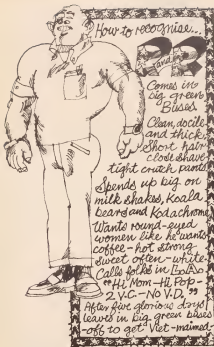 How to recognise...
R and R
Comes in
big green
Buses
Clean, docile
and thick.
Short hair
close shave
tight crutch pants
Spends up big on
milk shakes, koala
bears and Kodachrome
Wants round-eyed
women like he wants
coffee - hot strong
sweet often - white.
Calls folks in
"Hi Mom - Hi Pop -
2 V.C. - No V.D."
After five glorious days
leaves in big green buses
- off to get Viet-maimed